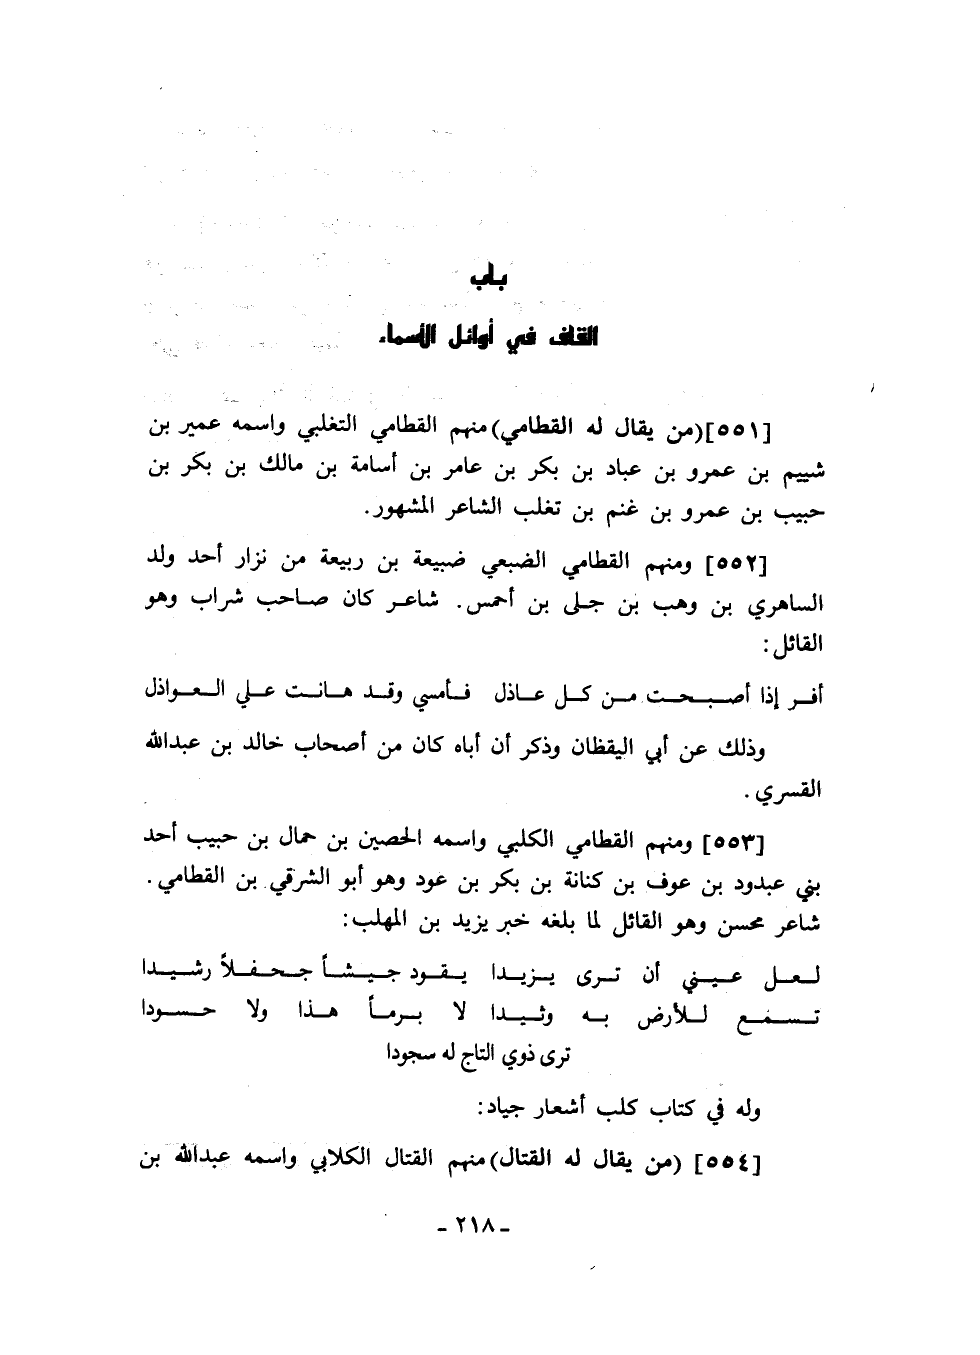 باب
القاف في أوائل الأسماء
[٥٥١](من يقال له القطامي)منهم القطامي التغلبي واسمه عمير بن
شييم بن عمرو بن عباد بن بكر بن عامر بن أسامة بن مالك بن بكر بن
حبيب بن عمرو بن غنم بن تغلب الشاعر المشهور.
[٥٥٢] ومنهم القطامي الضبعي ضبيعة بن ربيعة من نزار أحد ولد
الساهري بن وهب بن جلى بن أحمس. شاعر كان صاحب شراب وهو
القائل:
أفر إذا أصبحت من كل عاذل فأمسي وقد هانت علي العواذل
وذلك عن أبي اليقظان وذكر أن أباه كان من أصحاب خالد بن عبدالله
القسري.
[٥٥٣] ومنهم القطامي الكلبي واسمه الحصين بن حمال بن حبيب أحد
بني عبدود بن عوف بن كنانة بن بكر بن عود وهو أبو الشرقي بن القطامي.
شاعر محسن وهو القائل لما بلغه خبر يزيد بن المهلب:
لعل عيني أن ترى يزيدا يقود جيشاً جحفلاً رشيدا
تسمع للأرض به وئيدا لا برماً هذا ولا حسودا
ترى ذوي التاج له سجودا
وله في كتاب كلب أشعار جياد:
[٥٥٤] (من يقال له القتال)منهم القتال الكلابي واسمه عبدالله بن
- ٢١٨ -